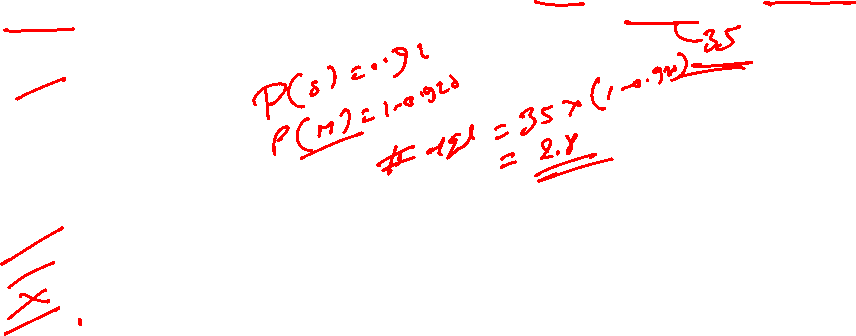 35
P(s) = 0.92
P(M) = 1-0.920
= 35 x (1-0.920)
= 2.8
x